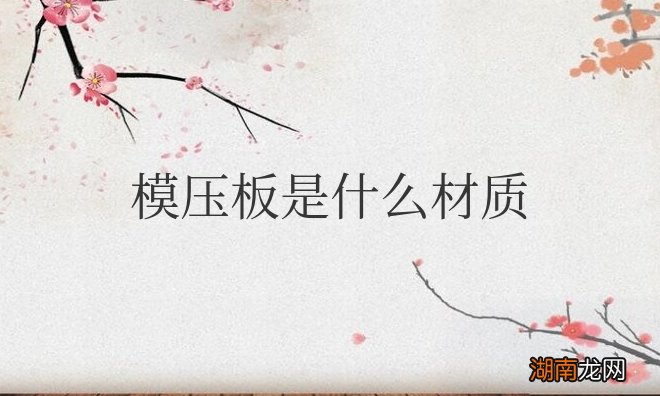 模压板是什么材质
湖南龙网